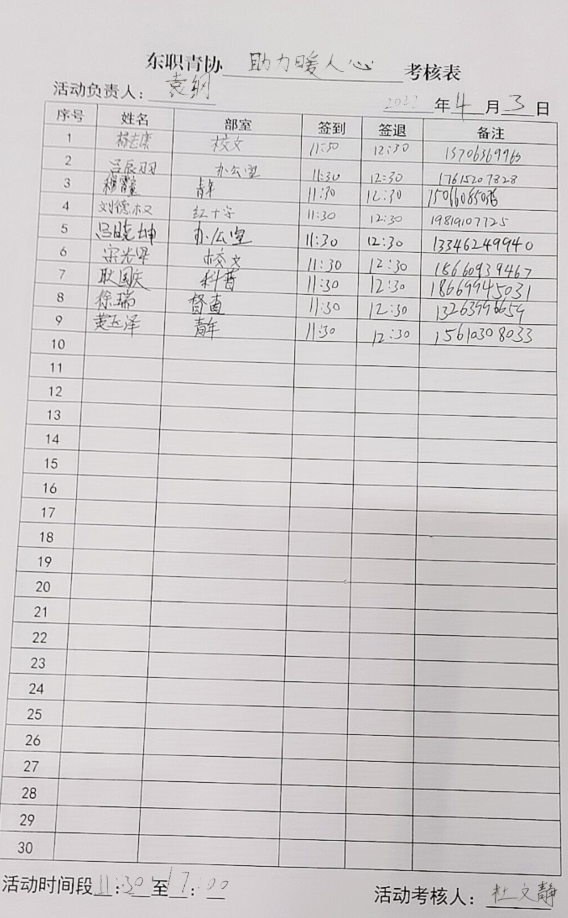 东职青协 助力暖人心 考核表
活动负责人：袁纲
年4月3日
序号 姓名 部室 签到 签退 备注
1 杨志康 校文 11:30 12:30
2 吕辰羽 办公室 11:30 12:30 17615207328
3 青年 11:30 12:30
4 刘德权 红十字 11:30 12:30 19819107725
5 吕晓坤 办公室 11:30 12:30 13346249940
6 宋光军 校文 11:30 12:30 18660939467
7 耿国庆 科普 11:30 12:30 18669945031
8 徐瑞 督查 11:30 12:30
9 黄玉泽 青年 11:30 12:30 15610308033
10
11
12
13
14
15
16
17
18
19
20
21
22
23
24
25
26
27
28
29
30
活动时间段11:30至17:00 活动考核人：杜文静